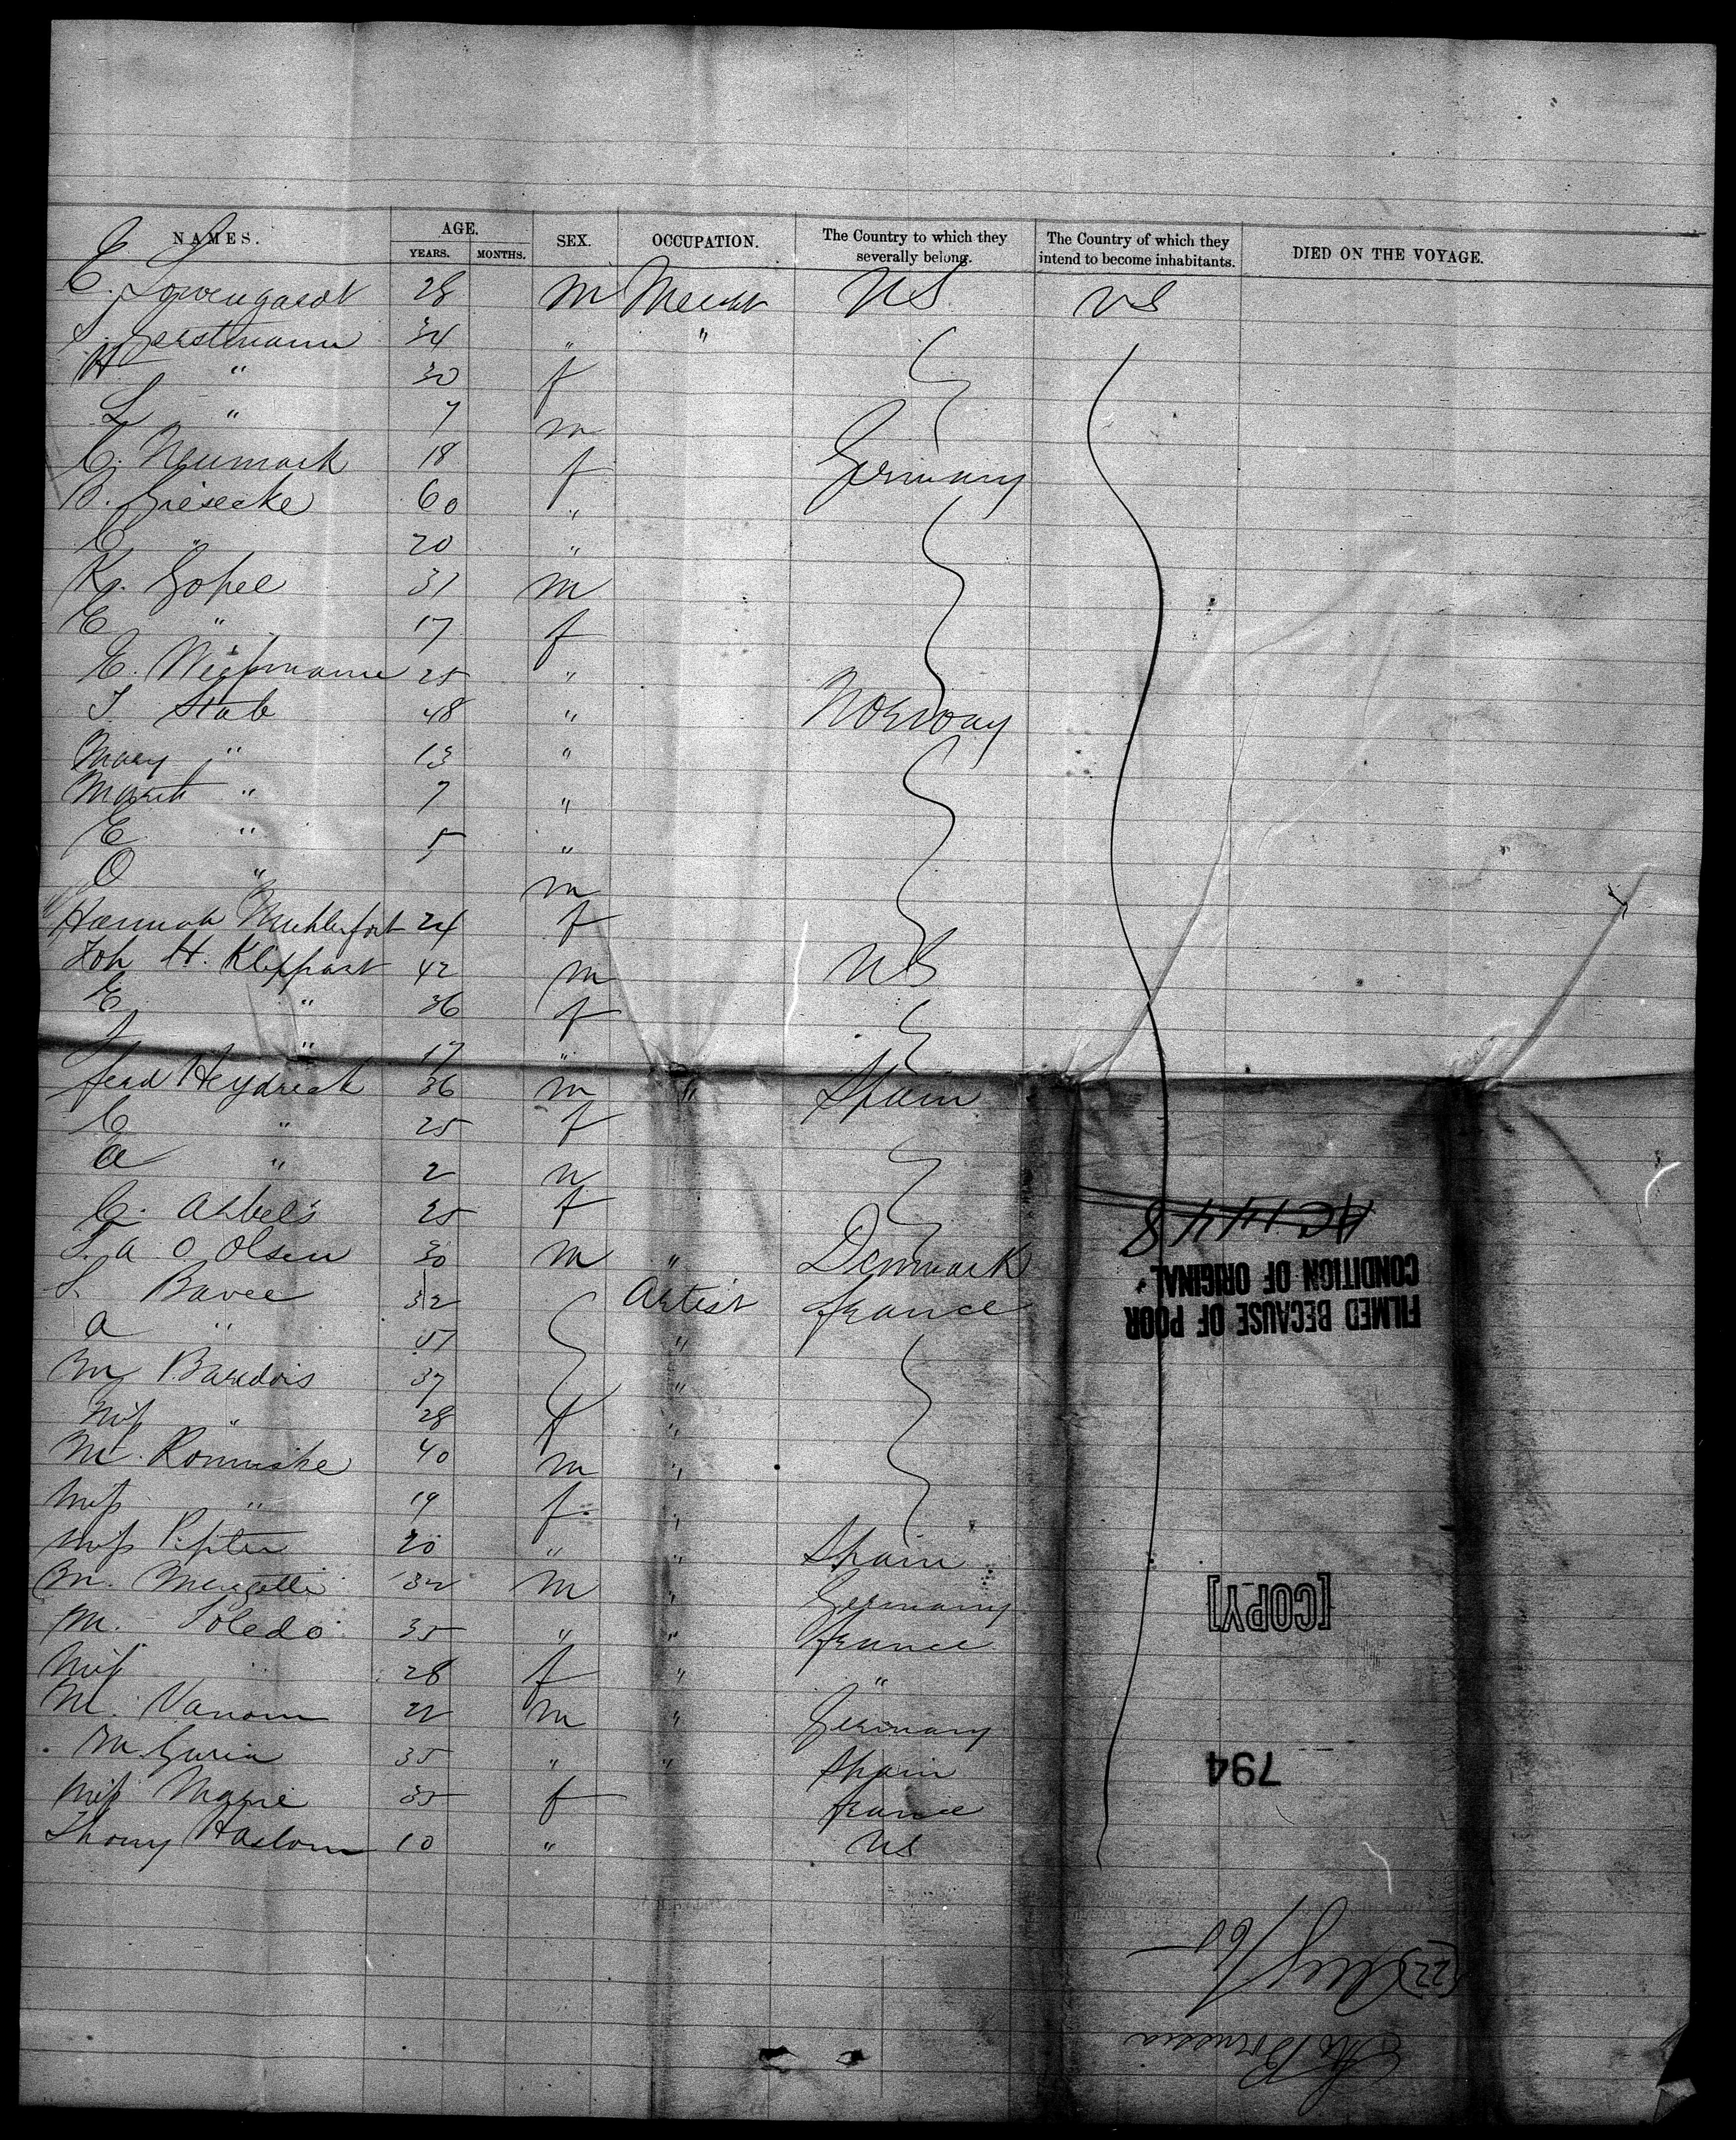 NAMES. AGE. YEARS. MONTHS. SEX. OCCUPATION. The Country to which they severally belong. The Country of which they intend to become inhabitants. DIED ON THE VOYAGE.
C. Lowengardt 28 m Mercht US US
S. Gerstmann 34 " "
H " 30 f
L " 7 m
C. Neumark 18 f Germany
B. Giesecke 60 "
C " 20 "
K. Gopel 31 m
E " 17 f
E. Wichmann 25 "
T Stab 48 " Norway
Mary " 13 "
Marit " 7 "
E " 5 "
O " m
Hannah 24 f
Joh H. Klippart 42 m US
E " 36 f
" 17 "
ferd Heydrich 36 m " Spain
C " 25 f
a " 2 m
C. Ahbels 25 f
L. a O Olsen 30 m " Denmark
S. Bavee 32 Artist france
a " "
M Baudois 37 "
Miss " 28 f "
M. 40 m "
Miss " 19 f "
Miss 20 " " Spain
M. 32 m " Germany
M. Toledo 35 " " france
Miss 28 f " "
M. 22 m " Germany
M. Guria 35 " " Spain
Miss Marie 35 f france
Thony Haslom 10 " US
FILMED BECAUSE OF POOR
CONDITION OF ORIGINAL
[COPY]
794
(22) Aug/60
Borussia